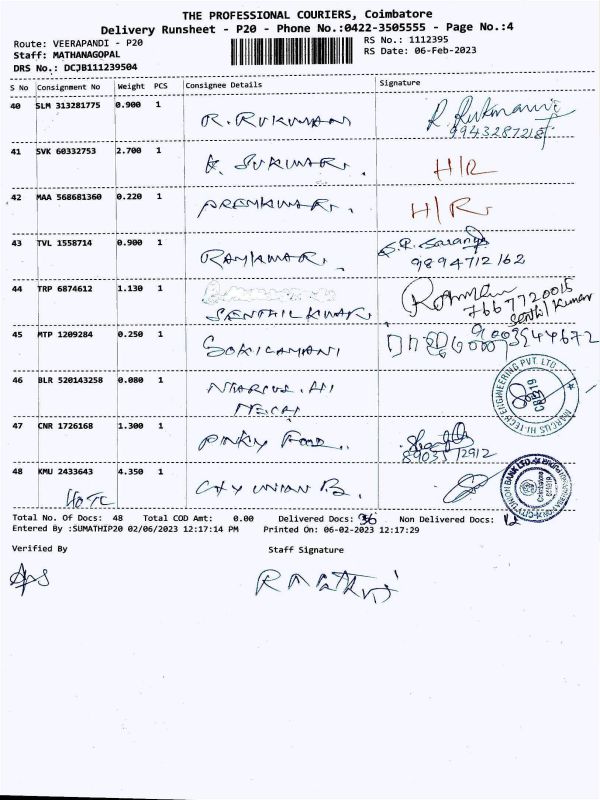 THE PROFESSIONAL COURIERS, Coimbatore
Delivery Runsheet - P20 - Phone No.:0422-3505555 - Page No.:4
Route: VEERAPANDI - P20
Staff: MATHANAGOPAL
DRS No.: DCJB111239504
RS No.: 1112395
RS Date: 06-Feb-2023
S No Consignment No Weight PCS Consignee Details Signature
40 SLM 313281775 0.900 1 R. RUKUMANI R. Rukmani
9943287218
41 SVK 60332753 2.700 1 K. SUKUMAR. H/R
42 MAA 568681360 0.220 1 PREMKUMAR. H/R
43 TVL 1558714 0.900 1 RAMKUMAR. S.R. Sarang
9894712162
44 TRP 6874612 1.130 1 SENTHILKUMAR
7667720015
Senthil Kumar
45 MTP 1209284 0.250 1 9003944672
46 BLR 520143258 0.080 1 MARCUS HI
TECH
MARCUS HI-TECH ENGINEERING PVT. LTD.
47 CNR 1726168 1.300 1 PINKY FOOD.
8903512912
48 KMU 2433643 4.350 1 CITY UNION B.
CITY UNION BANK LTD.
Total No. Of Docs: 48 Total COD Amt: 0.00 Delivered Docs: 36 Non Delivered Docs: 12
Entered By :SUMATHIP20 02/06/2023 12:17:14 PM Printed On: 06-02-2023 12:17:29
Verified By Staff Signature